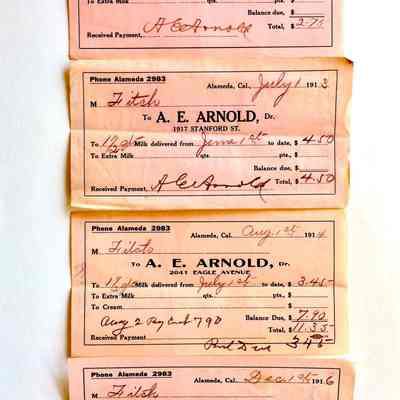 Balance due, $
A E Arnold
Received Payment, Total, $ 2.77
Phone Alameda 2983
Alameda, Cal. July 1 1913
M Fitch
To A. E. ARNOLD, Dr.
1917 STANFORD ST.
To Milk delivered from June 1st to date, $ 4.50
To Extra Milk qts. pts., $
Balance due, $
Received Payment, A E Arnold Total, $ 4.50
Phone Alameda 2983
Alameda, Cal. Aug 1st 1914
M Fitch
To A. E. ARNOLD, Dr.
2041 EAGLE AVENUE
To Milk delivered from July 1st to date, $ 3.45
To Extra Milk qts. pts. $
To Cream $
Aug 2 By 7.90 Balance Due, $ 7.90
Total, $ 11.35
Received Payment Bal Due 3 45
Phone Alameda 2983
Alameda, Cal. Dec 1st 1916
M Fitch